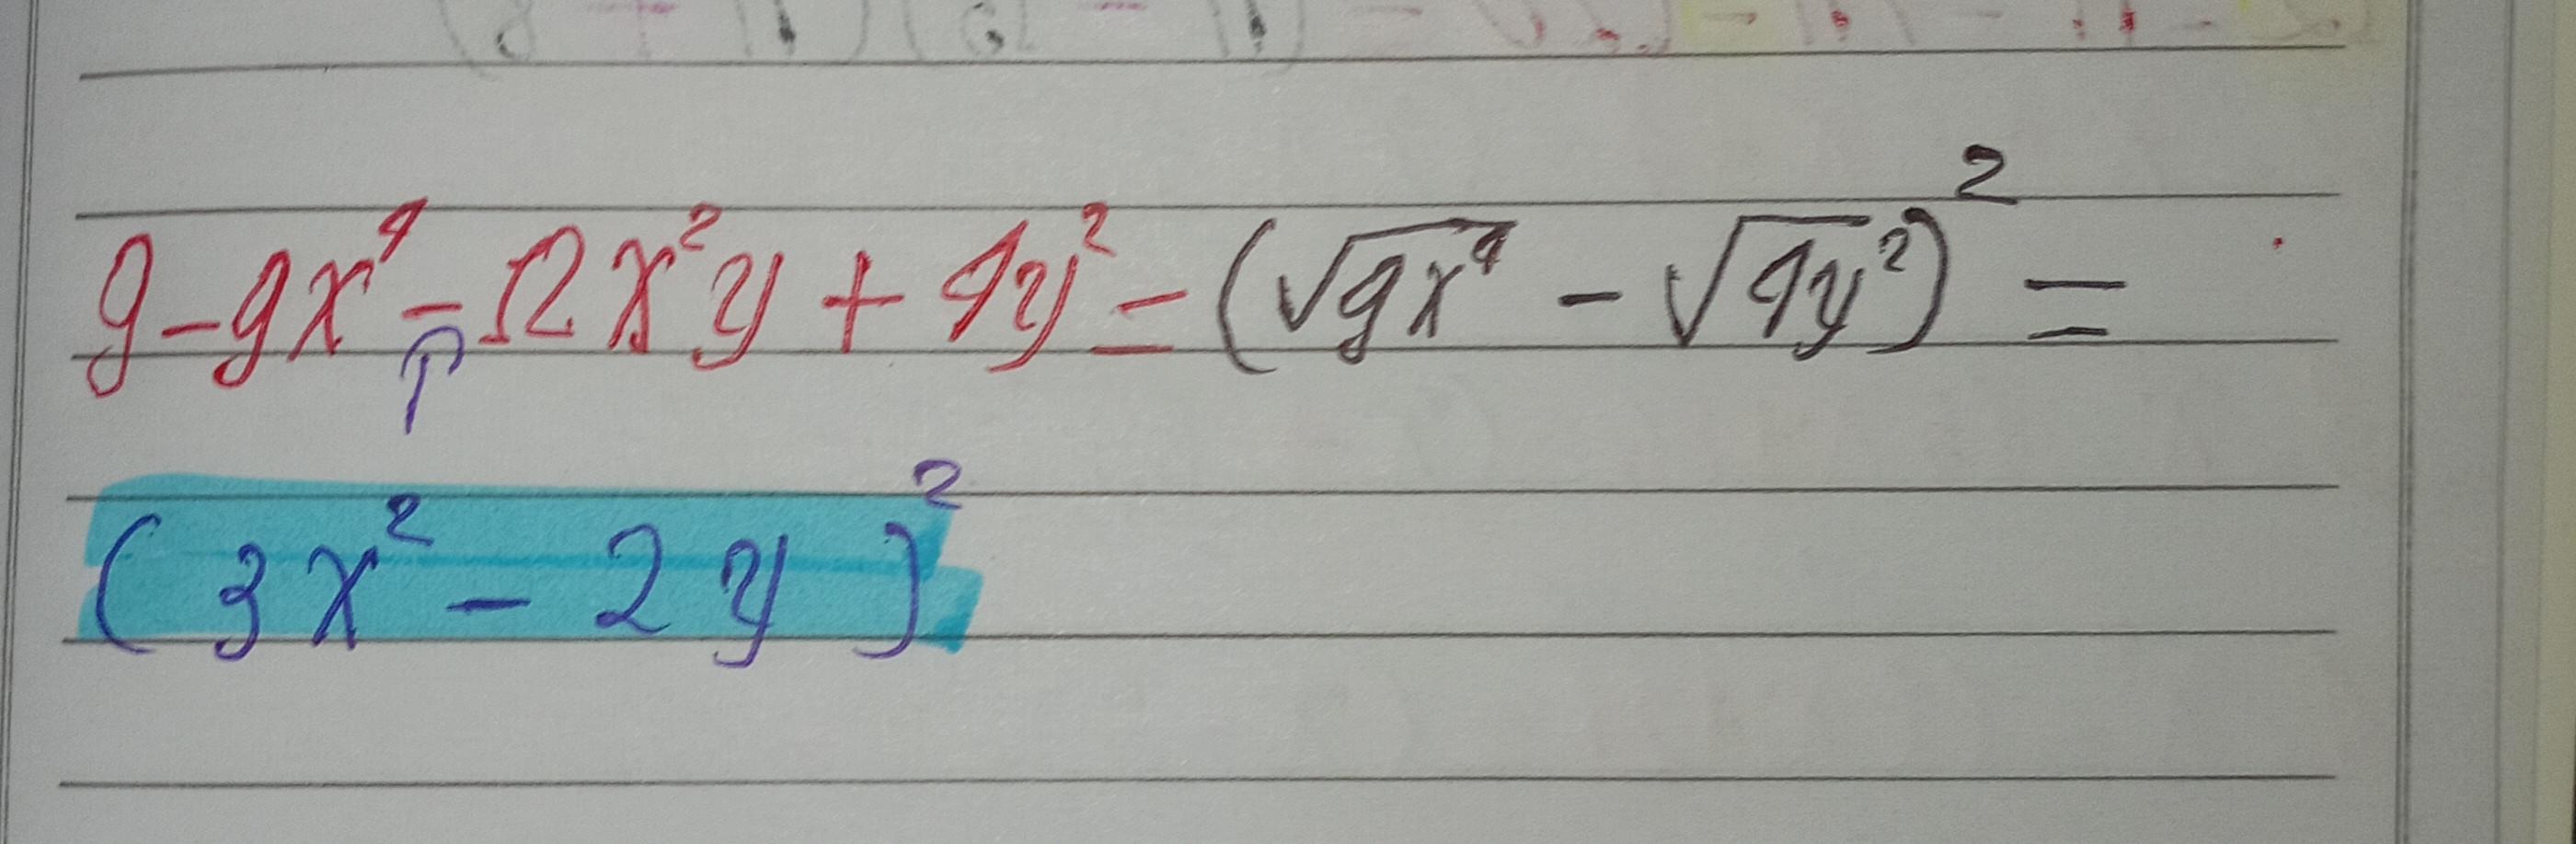 9-9x⁴-12x²y+4y²=(√9x⁴-√4y²)²=
(3x²-2y)²